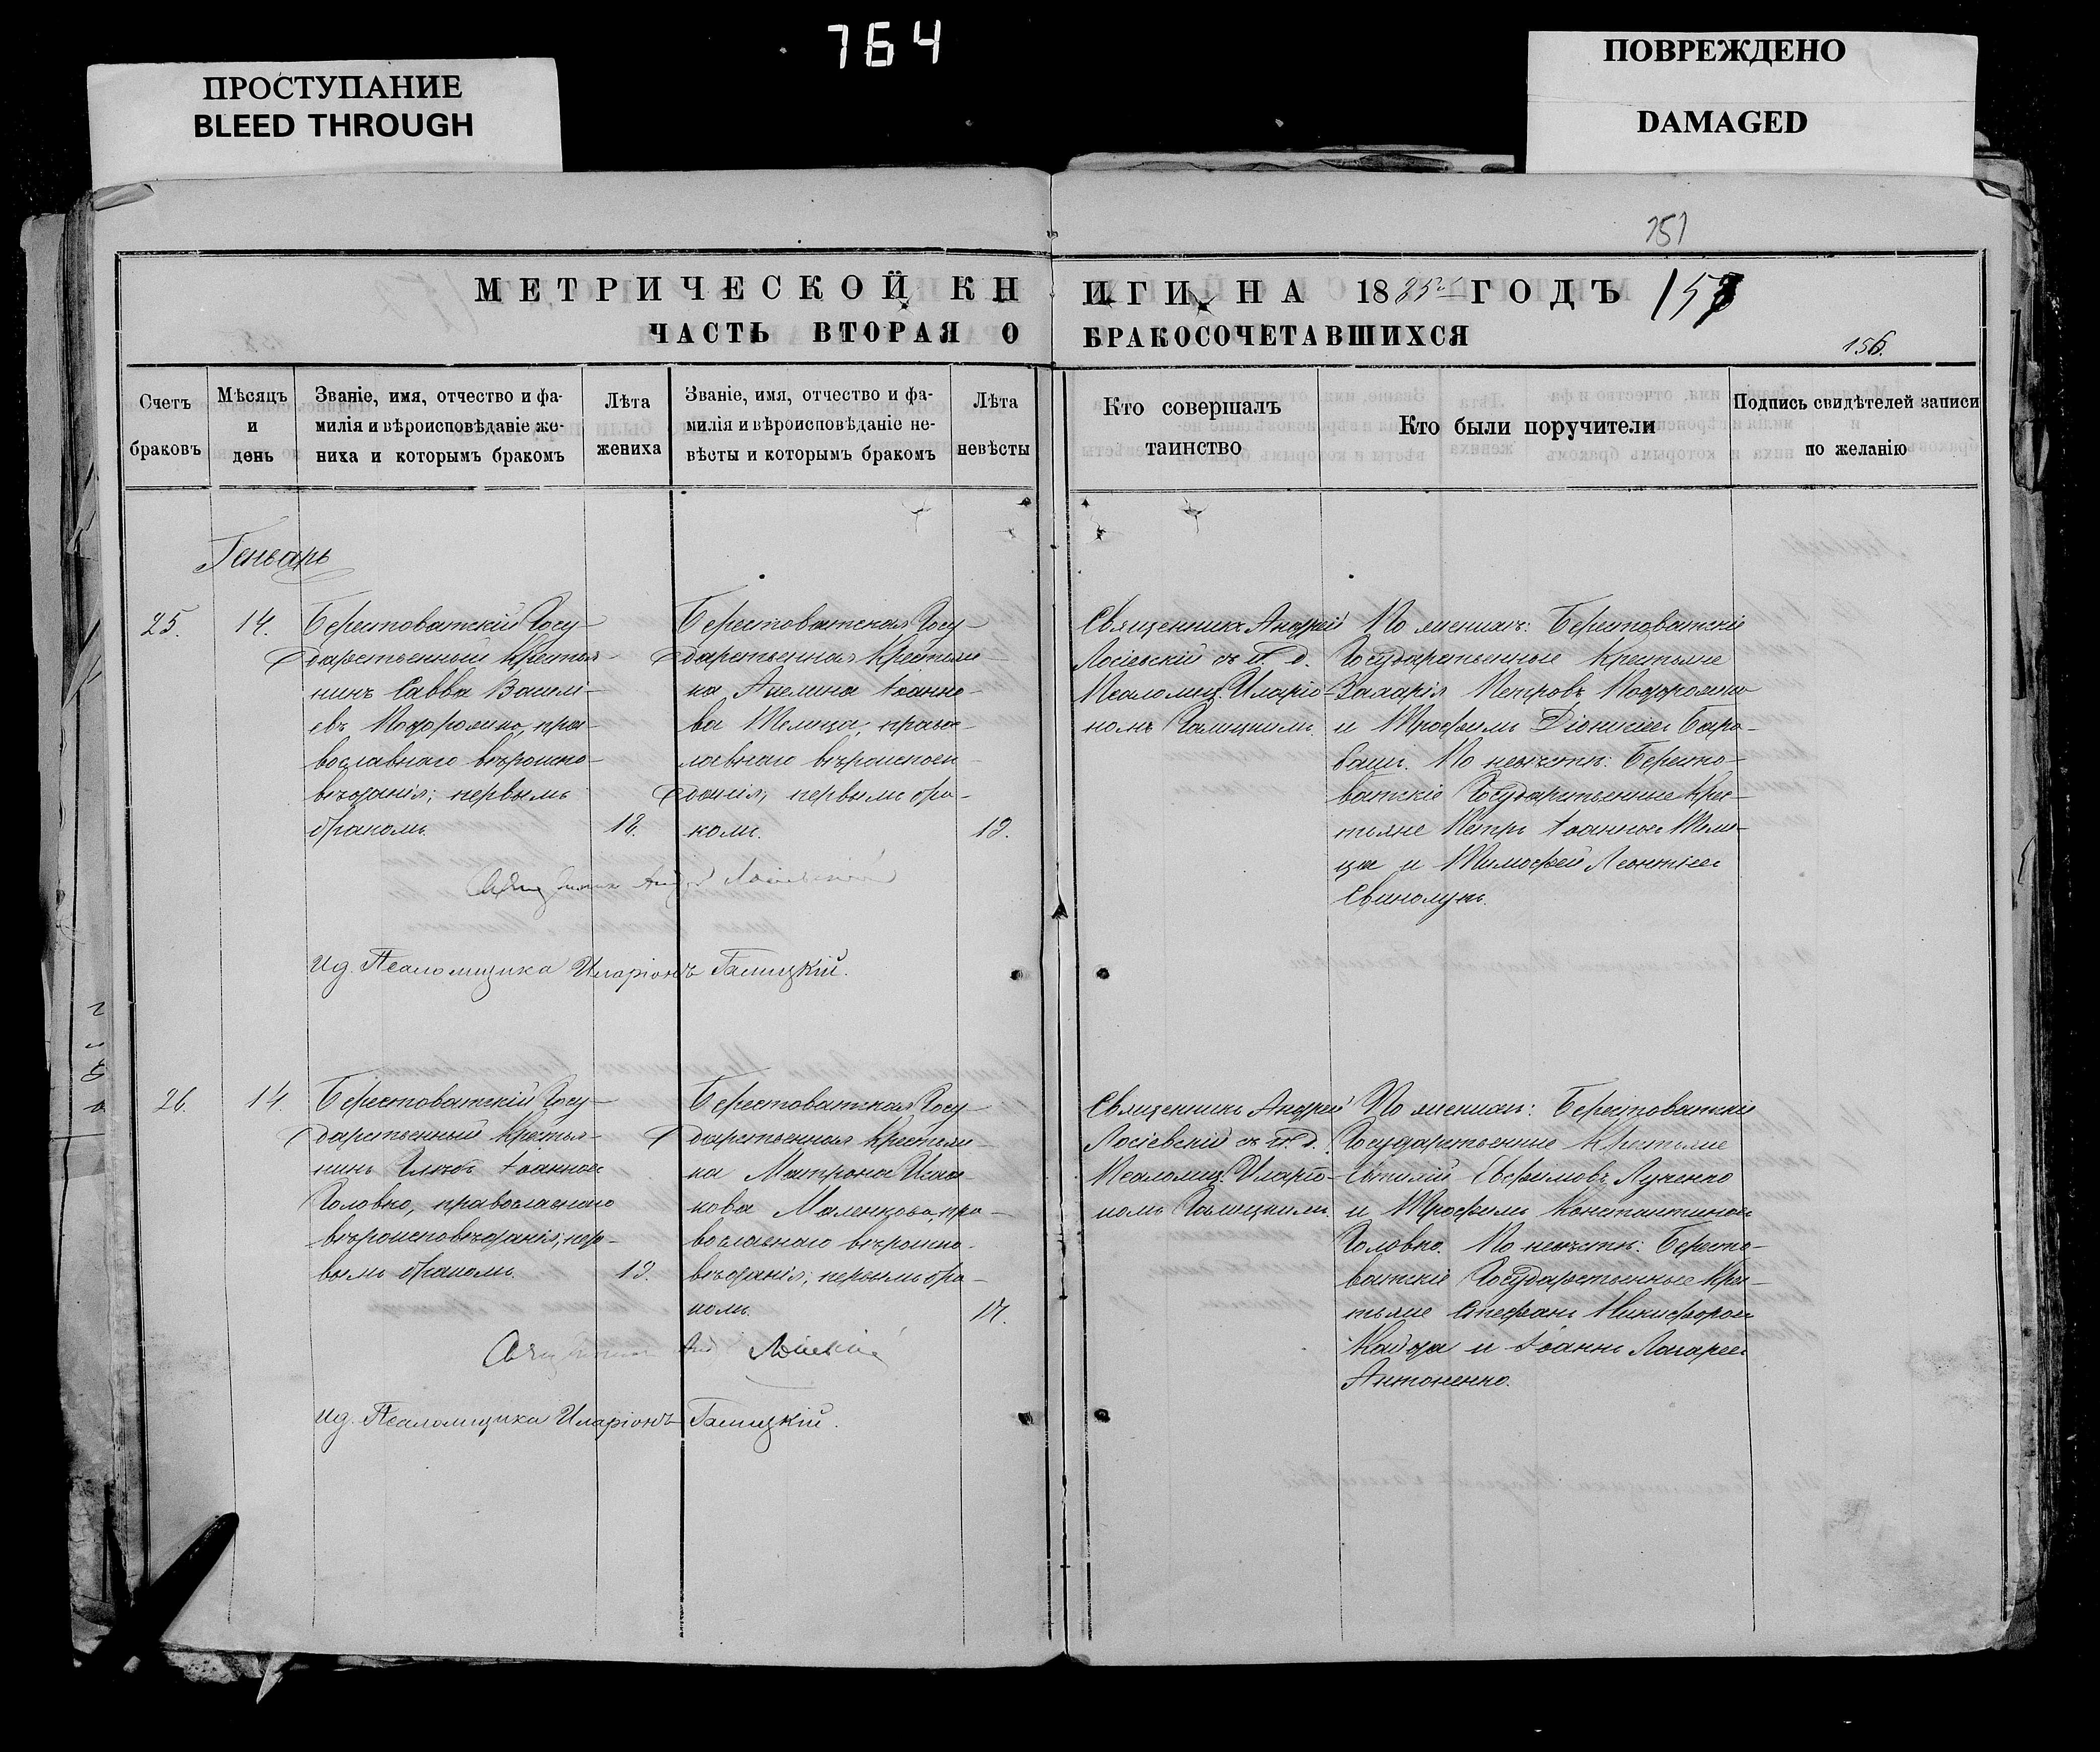 764
ПРОСТУПАНИЕ
BLEED THROUGH
ПОВРЕЖДЕНО
DAMAGED
151
МЕТРИЧЕСКОЙ КНИГИ НА 1885 ГОДЪ 157
ЧАСТЬ ВТОРАЯ О БРАКОСОЧЕТАВШИХСЯ
156.
Счетъ
браковъ
Мѣсяцъ
и
день
Званіе, имя, отчество и фа-
милія и вѣроисповѣданіе же-
ниха и которымъ бракомъ
Лѣта
жениха
Званіе, имя, отчество и фа-
милія и вѣроисповѣданіе не-
вѣсты и которымъ бракомъ
Лѣта
невѣсты
Кто совершалъ
таинство
Кто были поручители
Подпись свидѣтелей записи
по желанію
Генварь
25.
14.
Берестоватскій Госу-
дарственный Крестья-
нинъ Савва Васили-
евъ пра-
вославнаго вѣроиспо-
вѣданія; первымъ
бракомъ.
18.
Берестоватская Госу-
дарственная Крестьян-
ка, Іоанно-
ва правос-
лавнаго вѣроиспов
данія, первымъ бра-
комъ.
19.
Священникъ Андрей
Лосіевскій съ И. д.
Псаломщ. Иларіо-
номъ Галицкимъ.
По женихѣ: Берестоватскіе
Государственные Крестьяне
Захарія Петровъ
и Трофимъ Діонисіевъ Бара-
башъ. По невѣстѣ: Бересто-
ватскіе Государственные Крес-
тьяне Петръ Іоанновъ
и Тимофей Леонтіевъ
Свинолупъ.
Священникъ Андрей Лосіевскій
Ид. Псаломщика Иларіонъ Галицкій.
26.
14.
Берестоватскій Госу-
дарственный Крестья-
нинъ Глѣбъ Іоанновъ
Головко, православнаго
вѣроисповѣданія, пер-
вымъ бракомъ.
19.
Берестоватская Госу-
дарственная Крестьян-
ка Матрона Исаа-
кова Маленкова, пра-
вославнаго вѣроиспо-
вѣданія; первымъ бра-
комъ.
17.
Священникъ Андрей
Лосіевскій съ И. д.
Псаломщ. Иларіо-
номъ Галицкимъ.
По женихѣ: Берестоватскіе
Государственные Крестьяне
Евфимовъ Луценко
и Трофимъ Константиновъ
Головко. По невѣстѣ: Бересто-
ватскіе Государственные Крес-
тьяне Стефанъ Никифоровъ
Кайда и Іоаннъ Лазаревъ
Антоненко.
Священникъ Анд Лосіевскій
Ид. Псаломщика Иларіонъ Галицкій.